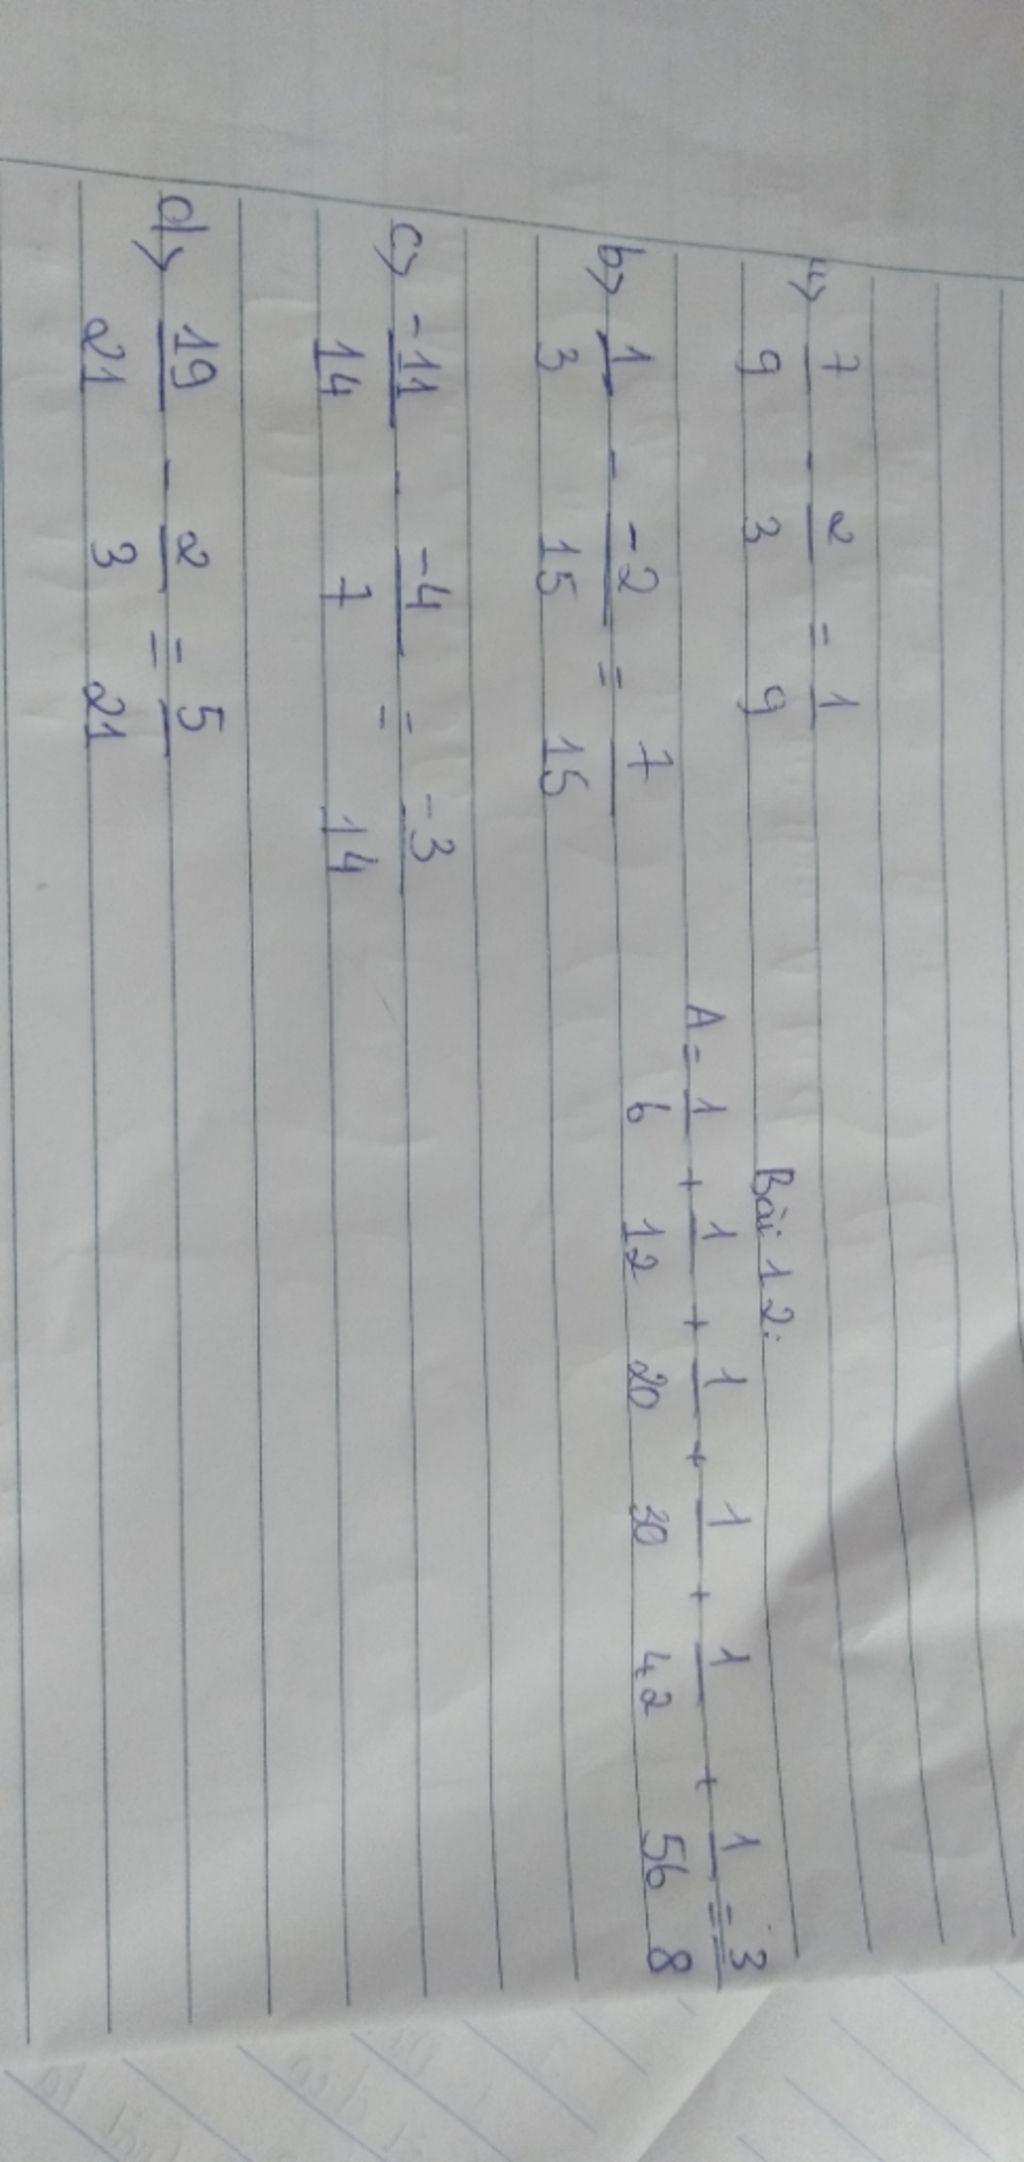 a> 7/9 - 2/3 = 1/9
b> 1/3 - -2/15 = 7/15
c> -11/14 - -4/7 = -3/14
d> 19/21 - 2/3 = 5/21
Bài 12:
A = 1/6 + 1/12 + 1/20 + 1/30 + 1/42 + 1/56 = 3/8